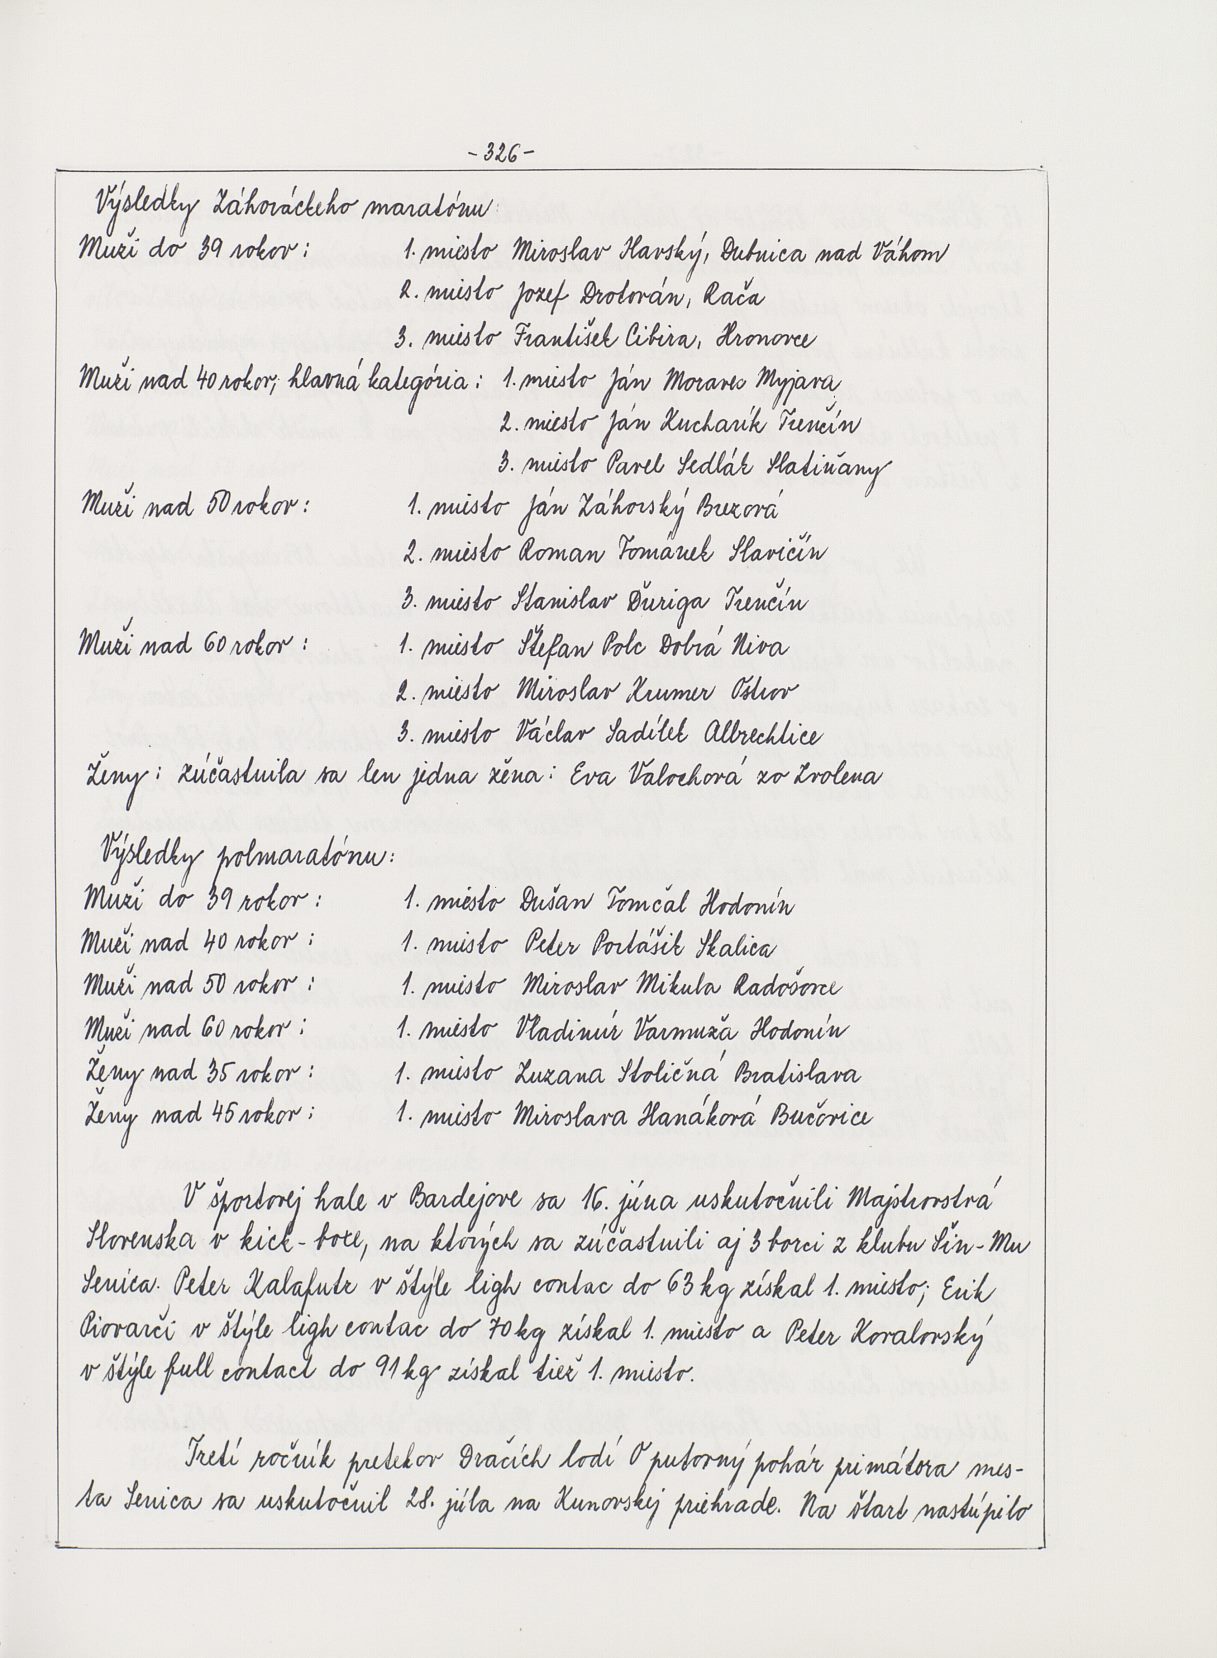 - 326 -
Výsledky Záhoráckeho maratónu:
Muži do 39 rokov: 1. miesto Miroslav Havský, Dubnica nad Váhom
2. miesto Jozef Drotován, Rača
3. miesto František Cibira, Hronovce
Muži nad 40 rokov, hlavná kategória: 1. miesto Ján Moravec Myjava
2. miesto Ján Kucharík Trenčín
3. miesto Pavel Sedlák Slatiňany
Muži nad 50 rokov: 1. miesto Ján Záhorský Brezová
2. miesto Roman Tománek Slavičín
3. miesto Stanislav Ďuriga Trenčín
Muži nad 60 rokov: 1. miesto Štefan Polc Dobrá Niva
2. miesto Miroslav Krumer Ostrov
3. miesto Václav Sadílek Albrechtice
Ženy: zúčastnila sa len jedna žena: Eva Valochová zo Zvolena
Výsledky polmaratónu:
Muži do 39 rokov: 1. miesto Dušan Tomčal Hodonín
Muži nad 40 rokov: 1. miesto Peter Portášik Skalica
Muži nad 50 rokov: 1. miesto Miroslav Mikula Radošovce
Muži nad 60 rokov: 1. miesto Vladimír Varmuža Hodonín
Ženy nad 35 rokov: 1. miesto Zuzana Stoličná Bratislava
Ženy nad 45 rokov: 1. miesto Miroslava Hanáková Bučovice
V športovej hale v Bardejove sa 16. júna uskutočnili Majstrovstvá
Slovenska v kick-boxe, na ktorých sa zúčastnili aj 3 borci z klubu Šin-Mu
Senica. Peter Kalafutz v štýle ligh contac do 63 kg získal 1. miesto; Erik
Piovarči v štýle ligh contac do 70 kg získal 1. miesto a Peter Kovalovský
v štýle full contact do 91 kg získal tiež 1. miesto.
Tretí ročník pretekov Dračích lodí O putovný pohár primátora mes-
ta Senica sa uskutočnil 28. júla na Kunovskej priehrade. Na štart nastúpilo